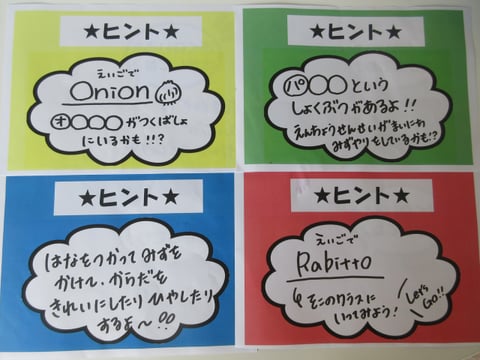 ★ヒント★
えいごで
Onion
オ○○○がつくばしょ
にいるかも!!?
★ヒント★
パ○○という
しょくぶつがあるよ!!
えんちょうせんせいがまいにち
みずやりをしているかも!?
★ヒント★
はなをつかってみずを
かけて、からだを
きれいにしたりひやしたり
するよ〜!!
★ヒント★
えいごで
Rabitto
そこのクラスに
いってみよう!
Let's
Go!!